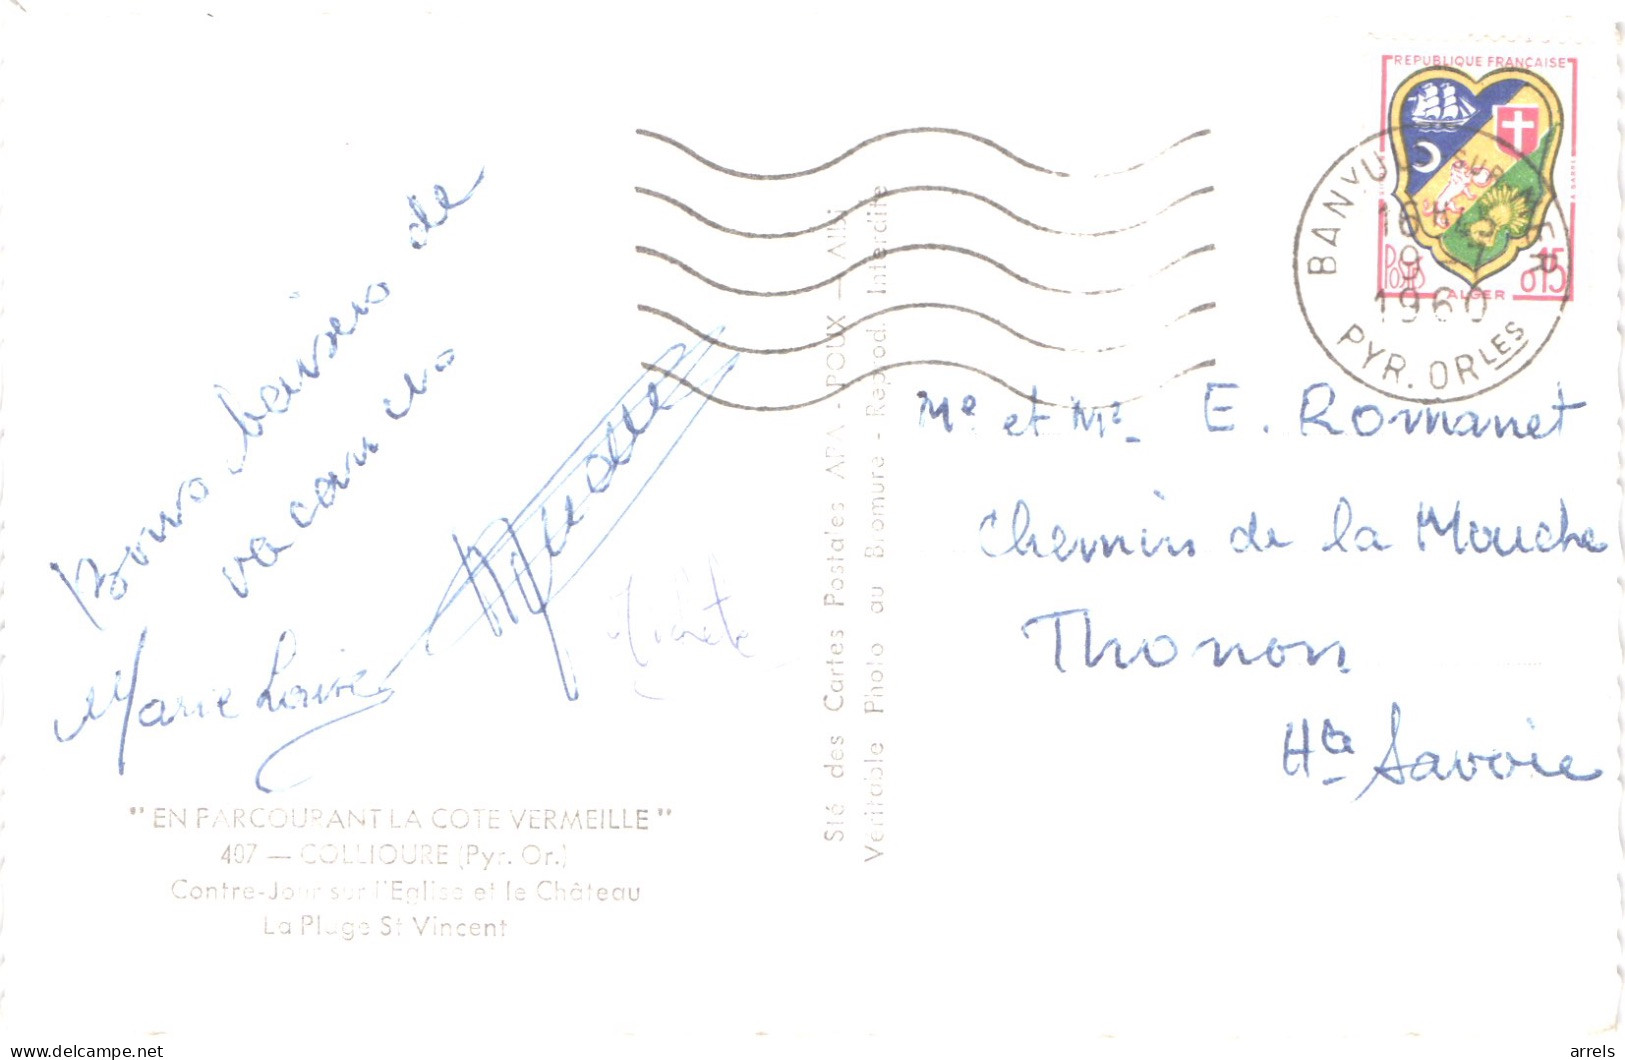 REPUBLIQUE FRANÇAISE
Postes
0,15
ALGER
BANYULS SUR MER
16 H
9
1960
PYR. ORLES
Bons baisers de
vacances
Marie Louise
Mr et Me E. Romanet
Chemin de la Mouche
Thonon
Hte Savoie
Sté des Cartes Postales APA-POUX — Albi
Véritable Photo au Bromure - Reprod. Interdite
" EN PARCOURANT LA COTE VERMEILLE "
407 — COLLIOURE (Pyr. Or.)
Contre-Jour sur l'Eglise et le Château
La Plage St Vincent
www.delcampe.net
arrels